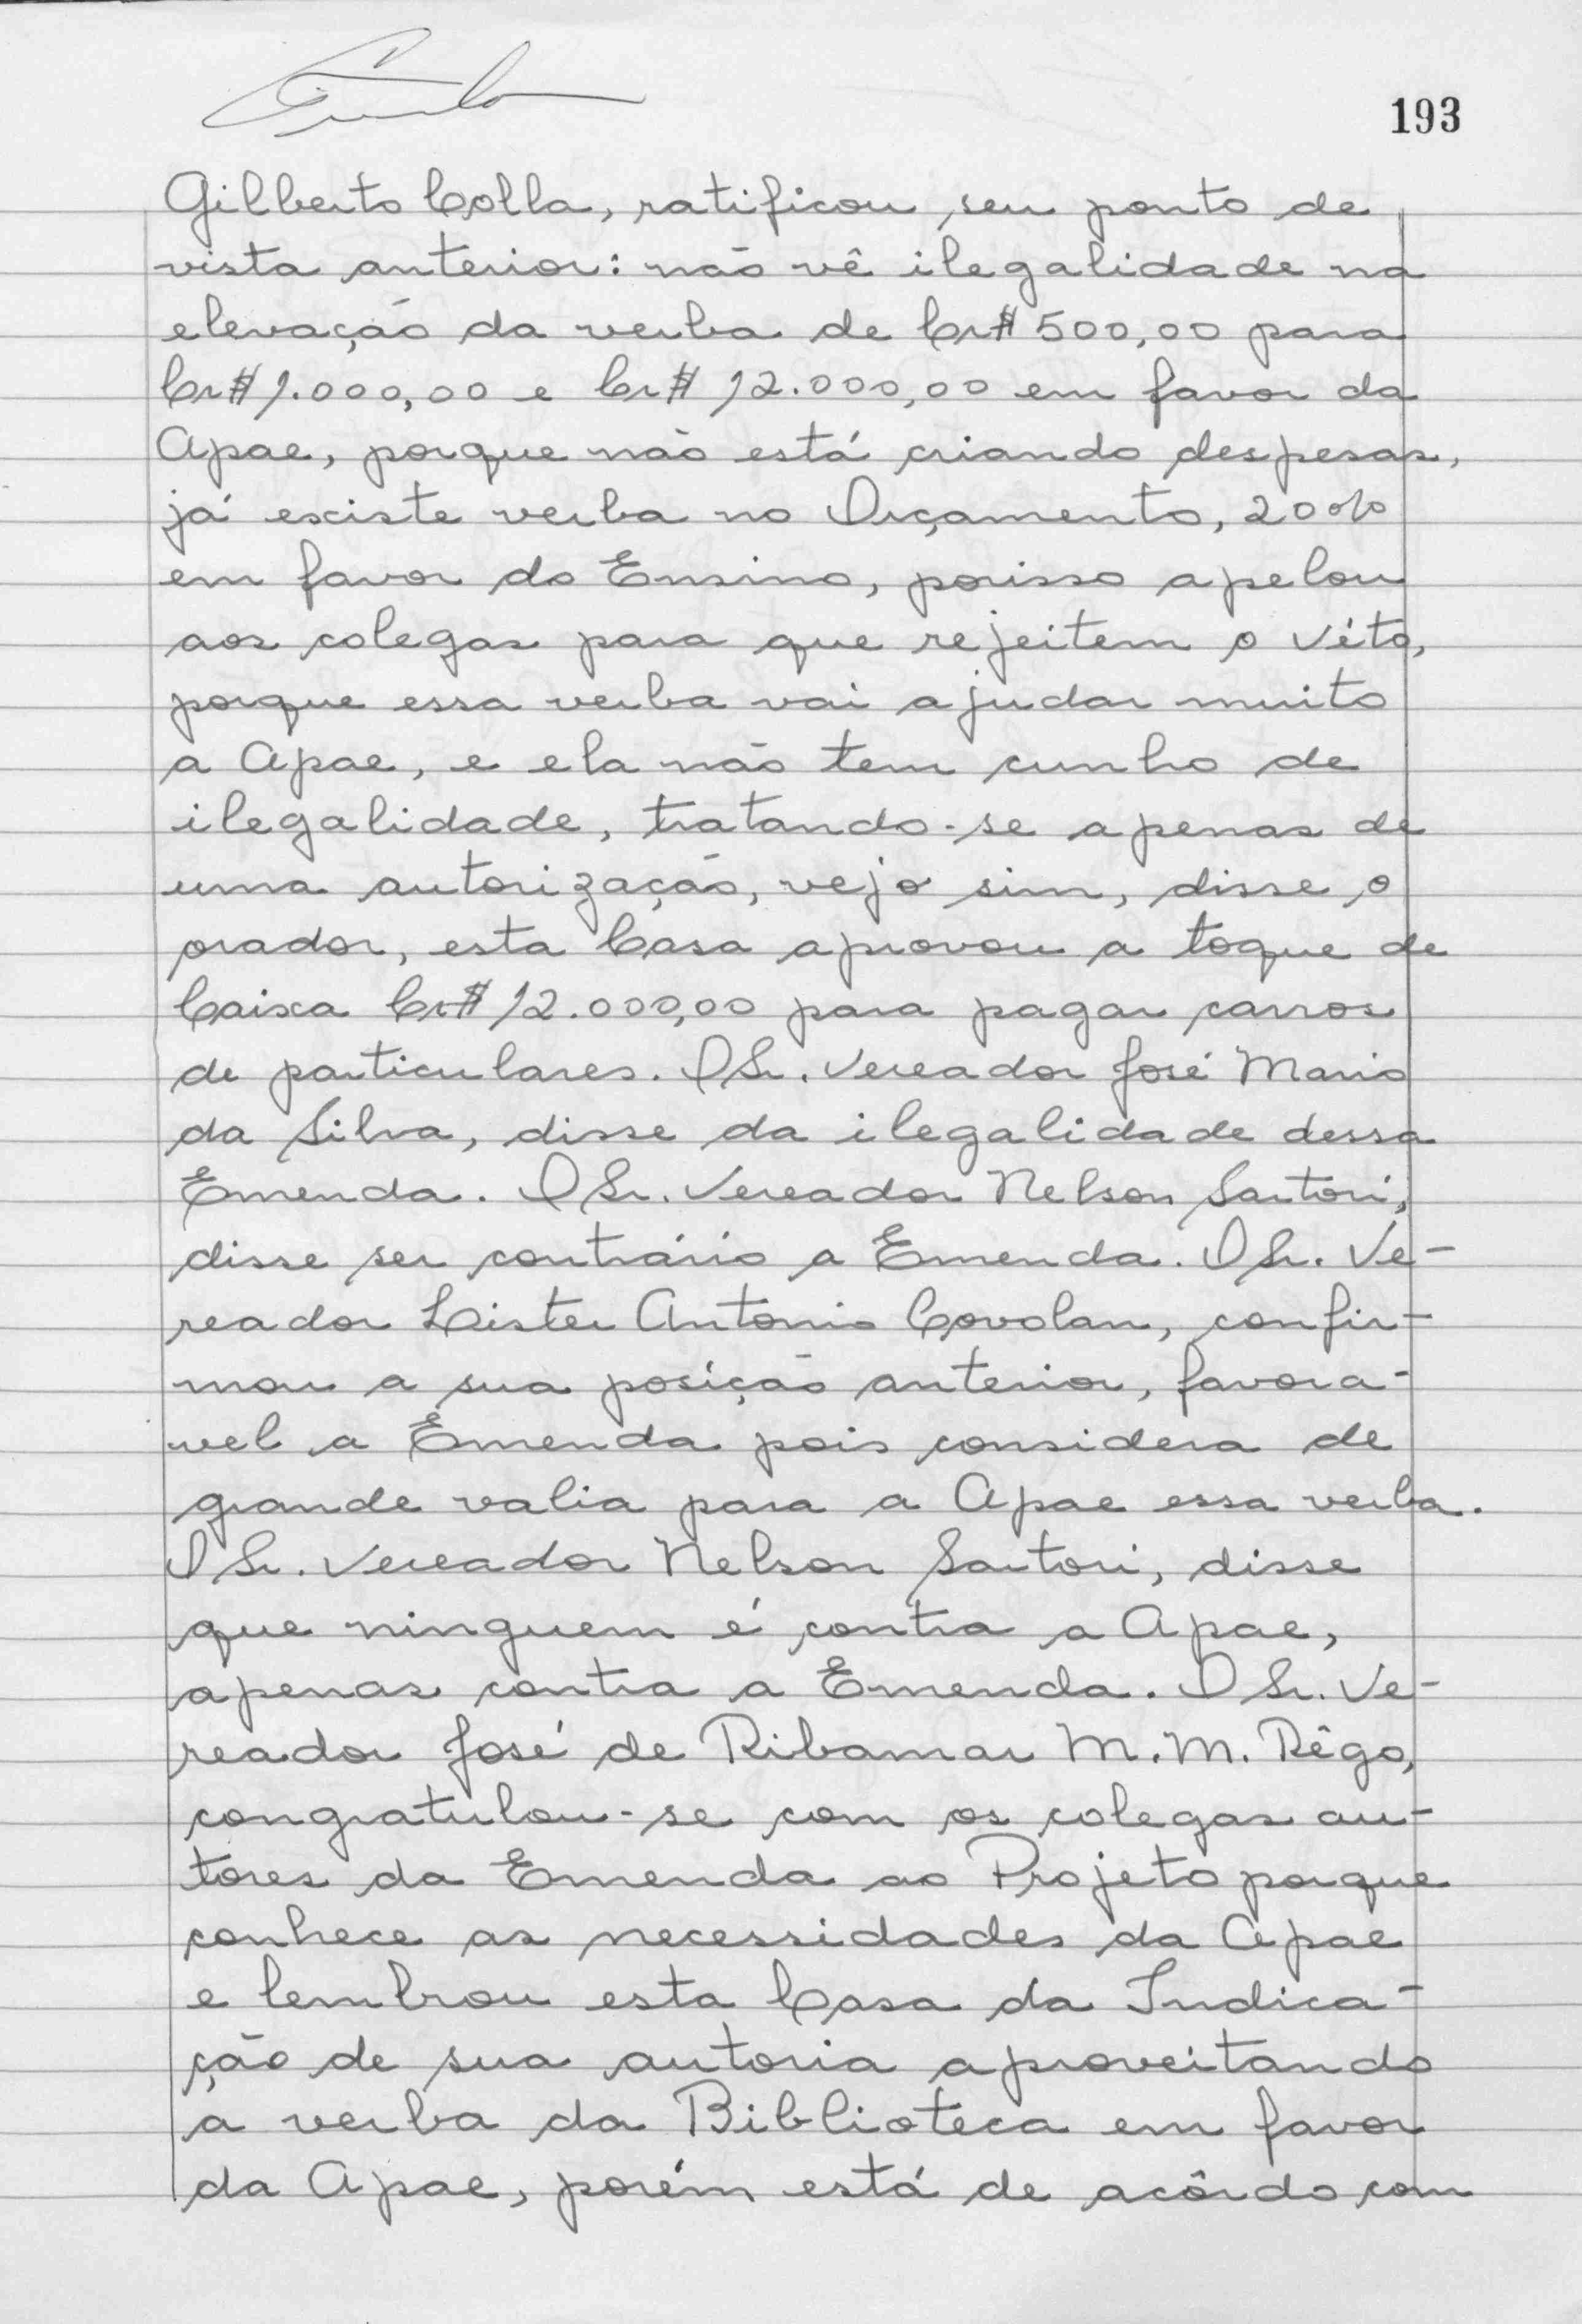 193
Gilberto Colla, ratificou seu ponto de
vista anterior: não vê ilegalidade na
elevação da verba de Cr$ 500,00 para
Cr$ 1.000,00 e Cr$ 12.000,00 em favor da
Apae, porque não está criando despesas,
já existe verba no Orçamento, 20%
em favor do Ensino, porisso apelou
aos colegas para que rejeitem o Véto,
porque essa verba vai ajudar muito
a Apae, e ela não tem cunho de
ilegalidade, tratando-se apenas de
uma autorização, vejo sim, disse o
orador, esta Casa aprovou a toque de
Caixa Cr$ 12.000,00 para pagar carros
de particulares. O Sr. Vereador José Mario
da Silva, disse da ilegalidade dessa
Emenda. O Sr. Vereador Nelson Sartori,
disse ser contrário a Emenda. O Sr. Ve-
reador Lister Antonio Covolan, confir-
mou a sua posição anterior, favora-
vel a Emenda pois considera de
grande valia para a Apae essa verba.
O Sr. Vereador Nelson Sartori, disse
que ninguem é contra a Apae,
apenas contra a Emenda. O Sr. Ve-
reador José de Ribamar M. M. Rêgo,
congratulou-se com os colegas au-
tores da Emenda ao Projeto porque
conhece as necessidades da Apae
e lembrou esta Casa da Indica-
ção de sua autoria aproveitando
a verba da Biblioteca em favor
da Apae, porém está de acôrdo com